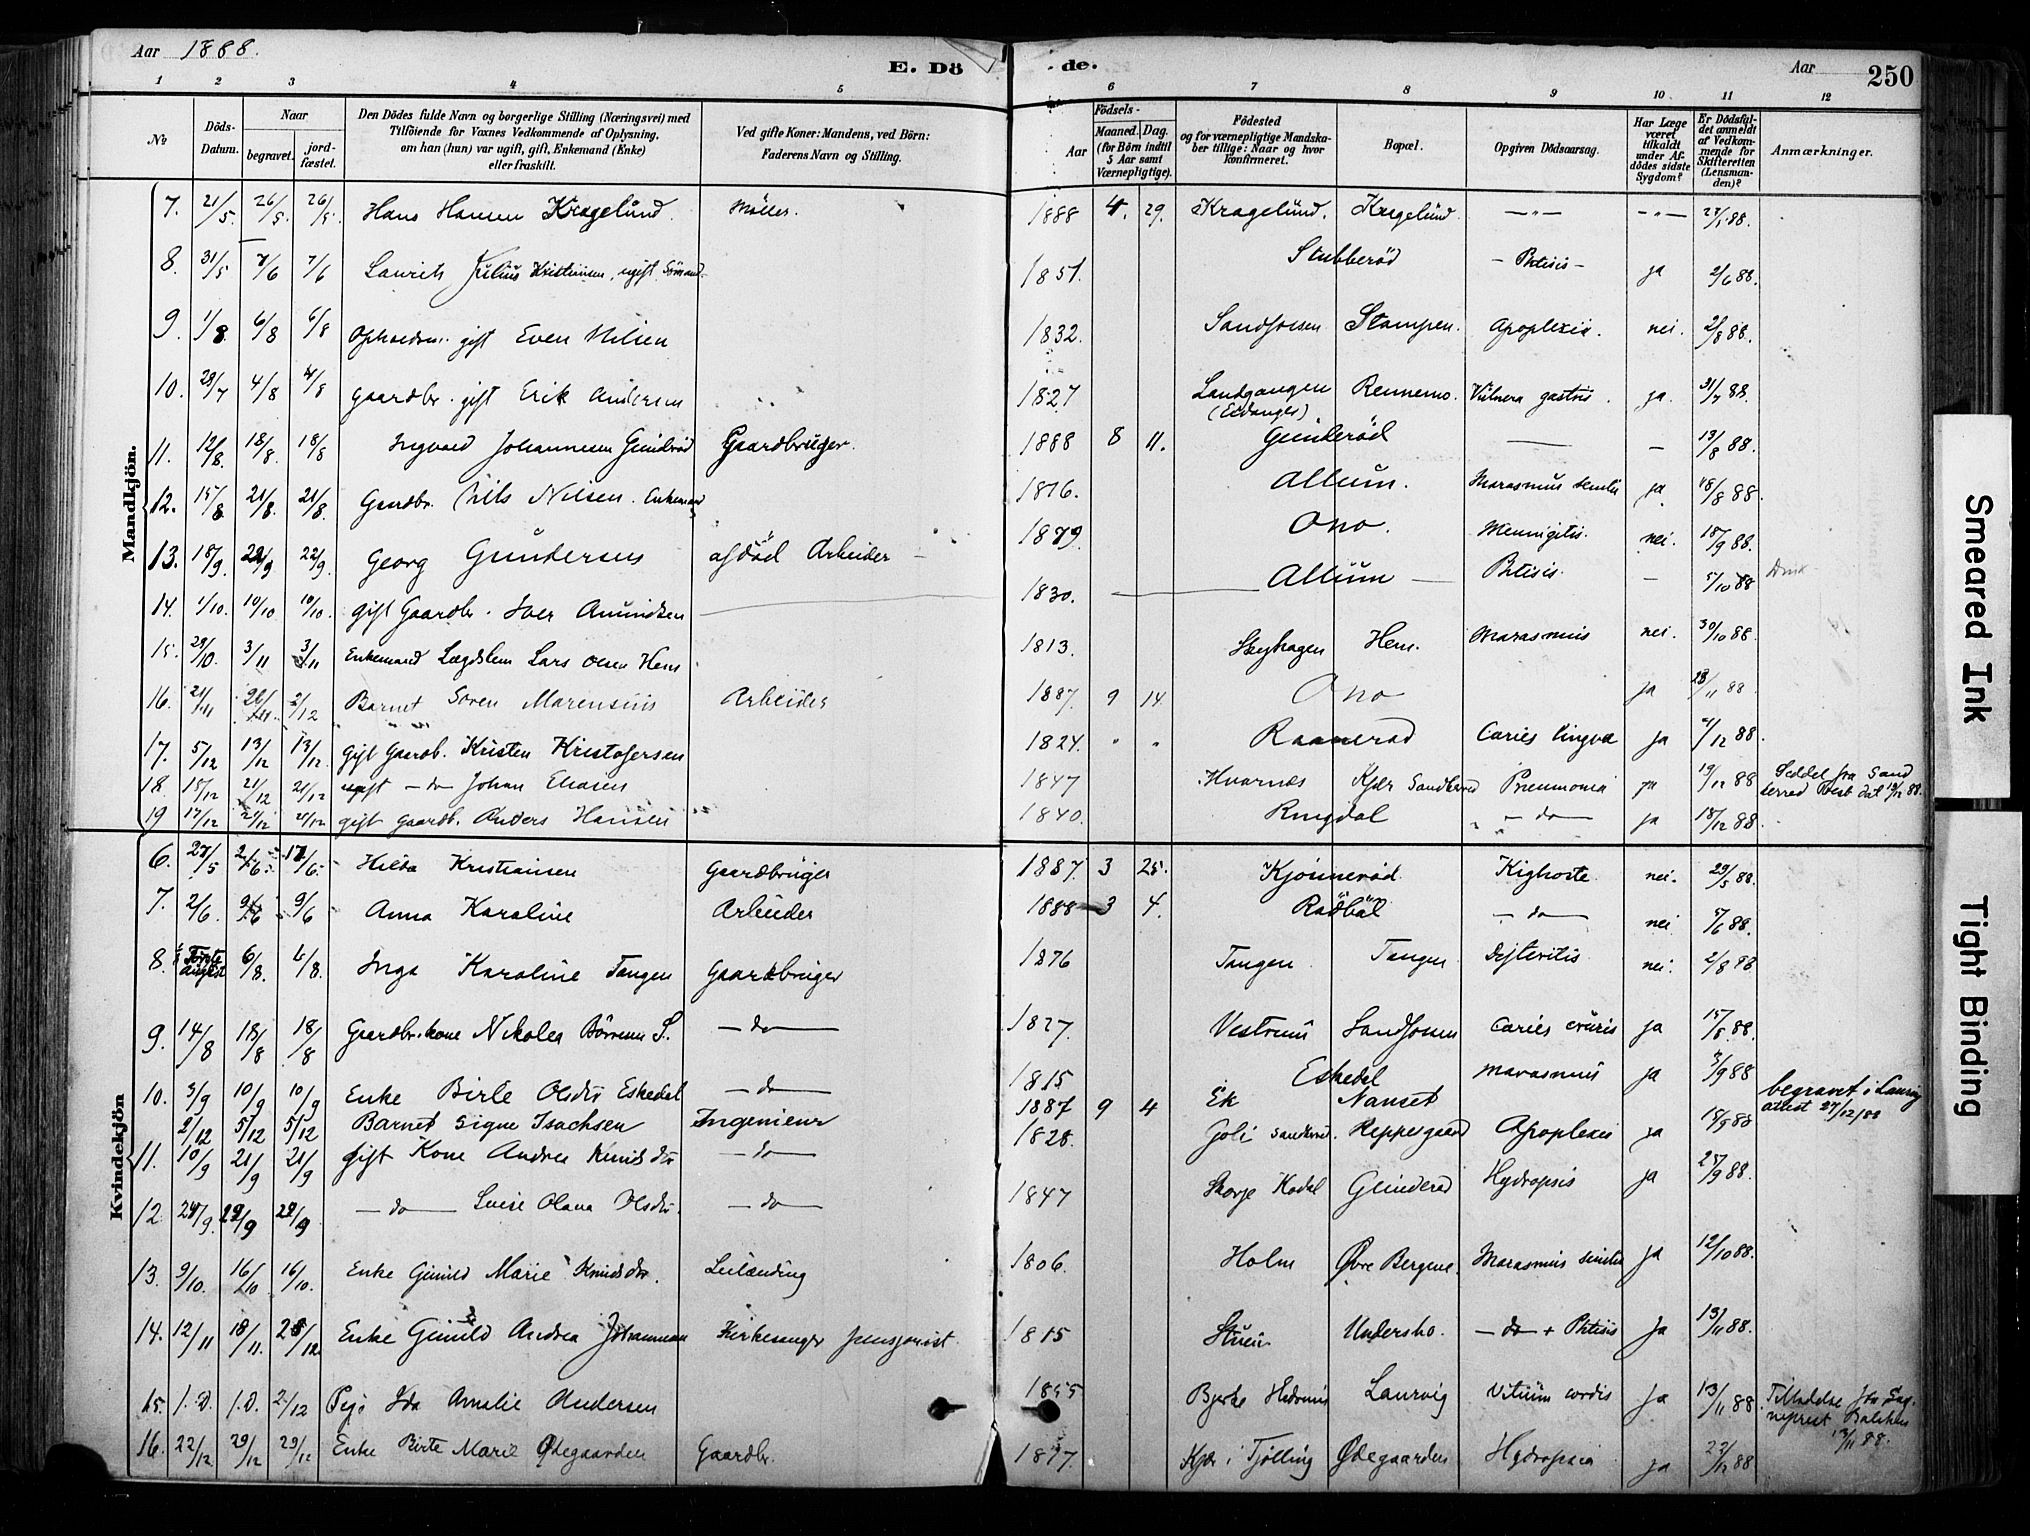 Aar 1888.
E. Dö
de.
Aar
250
1 2 3 4 5 6 7 8 9 10 11 12
No
Döds-
Datum.
Naar
begravet.
jord-
fæstet.
Den Dödes fulde Navn og borgerlige Stilling (Næringsvei) med
Tilföiende for Voxnes Vedkommende af Oplysning,
om han (hun) var ugift, gift, Enkemand (Enke)
eller fraskilt.
Ved gifte Koner: Mandens, ved Börn:
Faderens Navn og Stilling.
Födsels-
Aar
Maaned.
Dag.
(for Börn indtil
5 Aar samt
Værnepligtige).
Födested
og for værnepligtige Mandska-
ber tillige: Naar og hvor
konfirmeret.
Bopæl.
Opgiven Dödsaarsag.
Har Læge
været
tilkaldt
under Af-
dödes sidste
Sygdom?
Er Dödsfal-
det anmeldt
af Vedkom-
mende for
Skifteretten
(Lensman-
den)?
Anmærkninger.
Mandkjön.
7. 21/5 26/5 26/5 Hans Hansen Kragelund. Möller. 1888 4. 29. Kragelund. Kragelund — " — — " —
8. 31/5 7/6 7/6 Laurits Julius Kristiansen, ugift 1851. Stubberöd - Phtisis - ja 2/6 88.
9. 1/8. 6/8 6/8 gift Even Nilsen 1832. Stampen. Apoplexia. nei. 2/8 88.
10. 28/7 4/8 4/8 Gaardbr. gift Erik Andersen 1827 Landgangen (Eidanger) Rennemo. Vulnera gastris. ja. 31/7 88.
11. 12/8. 18/8. 18/8 Ingvald Johannesen Gunderöd Gaardbruger. 1888 8 11. Gunderöd — — 13/8 88.
12. 15/8 21/8. 21/8. Gaardbr. Nils Nilsen. Enkemand 1816. Allum. Marasmus senilis ja 18/8 88
13. 18/9. 22/9 22/9. Georg Gundersen afdöd Arbeider 1879. Ono. Meningitis. nei. 18/9 88.
14. 1/10. 10/10 10/10. gift Gaardbr. Iver Amundsen 1830. Allum Phtisis. — 5/10 88
15. 28/10. 3/11 3/11 Enkemand Lægdslem Lars Olsen Hem 1813. Hem. Marasmus nei. 30/10 88.
16. 21/11 26/11. 2/12 Barnet Soren Marensius Arbeider 1887. 9 14. Ono ja 23/11 88
17. 5/12 13/12 13/12. gift Gaardb. Kristen Kristofersen 1824. " " Raanerod Caries lingvæ ja 7/12 88.
18. 15/12 21/12 21/12 — do — Johan Eliasen 1847 Hvarnes Kjær Sandherred Pneumonia ja 19/12 88 Seddel fra Sand
herred Prest dat 19/12 88.
19 17/12 21/12 21/12 gift Gaardb. Anders Hansen 1840. Ringdal — do — ja 18/12 88.
Kvindekjön
6. 27/5 Hilda Kristiansen Gaardbruger 1887. 3 25. Kjönneröd. Kighoste nei. 29/5 88.
7. 2/6. 9/6 9/6 Anna Karoline Arbeider 1888 3 4. Rødbøl — do — nei 5/6 88.
8. Förste August 6/8. 6/8. Inga Karoline Tangen Gaardbruger 1876 Tangen Tangen Difteritis nei. 2/8 88
9. 14/8 18/8 18/8 Gaardbr.kone Nikolea Börresen S. — do — 1827. Vestrum Sandfossen Caries cruris ja 15/8. 88.
10. 3/9 10/9 10/9 Enke Birte Olsdtr Eskedal — do — 1815 Eskedal Marasmus ja 3/9 88
2/12 5/12 5/12 Barnet Signe Isachsen Ingenieur 1887 9 4 Ek Nanset begravet i Laurvig
attest 27/12/88
11. 10/9 21/9 21/9 gift Kone Andrea — do — 1828. Goli Sandherred. Apoplexia ja 18/9 88
12 24/9. 29/9 29/9 — do — Lovise Olava Olsdtr. — do — 1847 Skorge Kodal Gunderød Hydropsis ja 25/9 88.
13. 9/10. 16/10 16/10. Enke Gunild Marie Knudsdtr. Leilænding 1806. Holm Øvre Bergene. Marasmus senilis ja 12/10 88.
14. 12/11 18/11. Enke Gunild Andrea Johannesen Kirkesanger pensjonist. 1815 Undersbo. — do — + Phtisis ja 13/11 88.
15. 1.D. 1.D. 2/12 Ida Amalie Andersen Bjerke Hedrum Laurvig Vitium cordis ja 13/11 88. Tilladelse fra Sog-
neprest
13/11 88.
16. 22/12 29/12 29/12 Enke Birte Marie Ødegaarden Gaardbr. Kjær i Tjølling Ødegaarden Hydropsia ja 23/12 88
Smeared Ink
Tight Binding